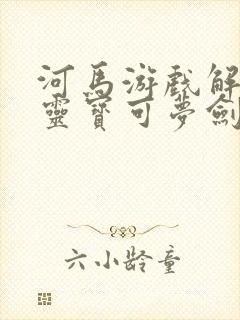 河馬游戲解
靈寶可夢劍
六小齡童